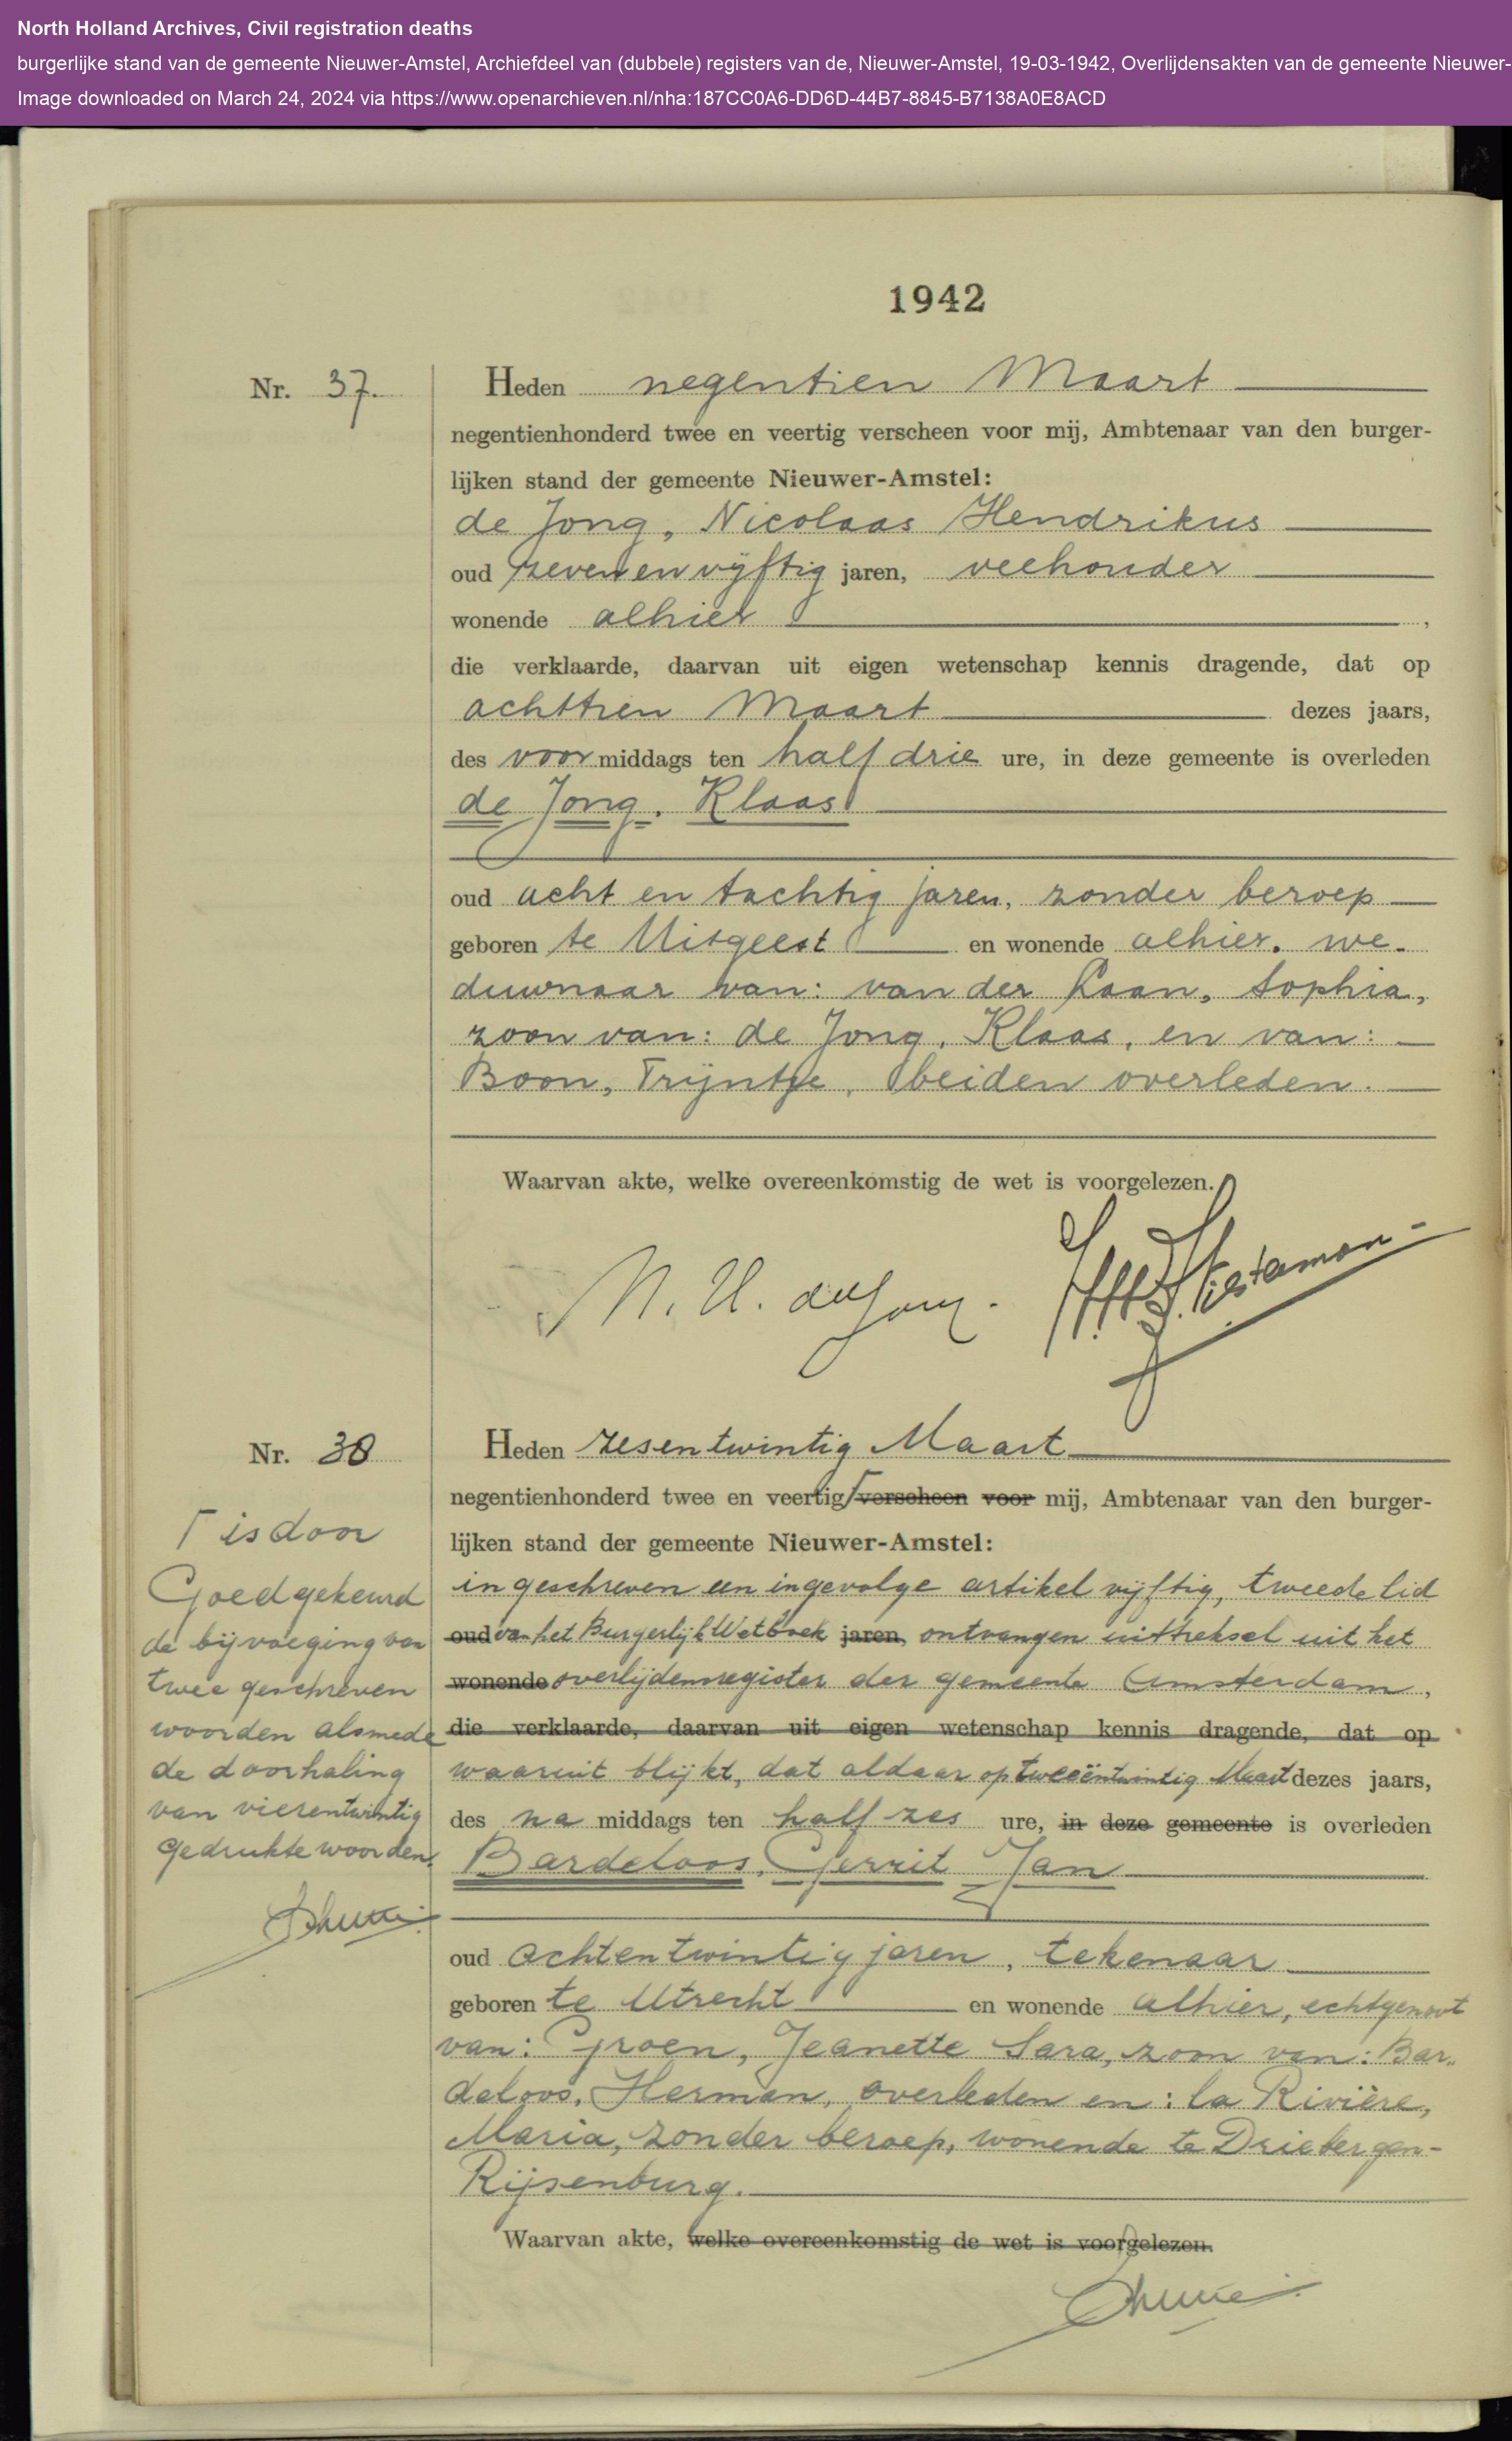 North Holland Archives, Civil registration deaths
burgerlijke stand van de gemeente Nieuwer-Amstel, Archiefdeel van (dubbele) registers van de, Nieuwer-Amstel, 19-03-1942, Overlijdensakten van de gemeente Nieuwer-
Image downloaded on March 24, 2024 via https://www.openarchieven.nl/nha:187CC0A6-DD6D-44B7-8845-B7138A0E8ACD
1942
Nr. 37.
Heden negentien Maart
negentienhonderd twee en veertig verscheen voor mij, Ambtenaar van den burger-
lijken stand der gemeente Nieuwer-Amstel:
de Jong, Nicolaas Hendrikus
oud zeven en vijftig jaren, veehouder
wonende alhier,
die verklaarde, daarvan uit eigen wetenschap kennis dragende, dat op
achttien Maart dezes jaars,
des voormiddags ten half drie ure, in deze gemeente is overleden
de Jong, Klaas
oud acht en tachtig jaren, zonder beroep
geboren te Uitgeest en wonende alhier, we-
duwnaar van: van der Laan, Sophia,
zoon van: de Jong, Klaas, en van:
Boon, Trijntje, beiden overleden.
Waarvan akte, welke overeenkomstig de wet is voorgelezen.
N. H. de Jong.
Nr. 38
Heden zesentwintig Maart
negentienhonderd twee en veertig verscheen voor mij, Ambtenaar van den burger-
lijken stand der gemeente Nieuwer-Amstel:
ingeschreven een ingevolge artikel vijftig, tweede lid
oud van het Burgerlijk Wetboek jaren, ontvangen uittreksel uit het
wonende overlijdensregister der gemeente Amsterdam,
die verklaarde, daarvan uit eigen wetenschap kennis dragende, dat op
waaruit blijkt, dat aldaar op tweeëntwintig Maart dezes jaars,
des na middags ten half zes ure, in deze gemeente is overleden
Bardeloos, Gerrit Jan
oud achtentwintig jaren, tekenaar
geboren te Utrecht en wonende alhier, echtgenoot
van: Groen, Jeanette Sara, zoon van: Bar-
deloos, Herman, overleden en: la Rivière,
Maria, zonder beroep, wonende te Driebergen-
Rijsenburg.
Waarvan akte, welke overeenkomstig de wet is voorgelezen.
Γ is door
Goedgekeurd
de bijvoeging van
twee geschreven
woorden alsmede
de doorhaling
van vierentwintig
gedrukte woorden.